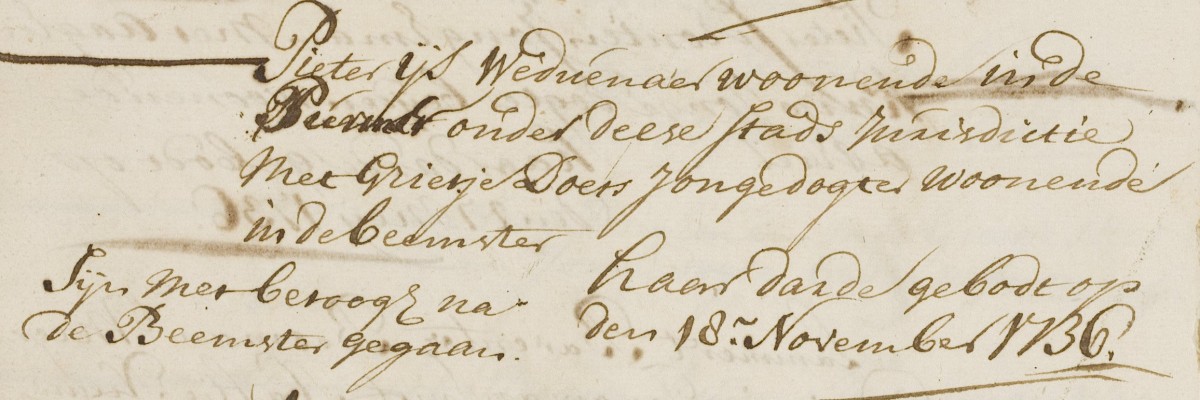 Pieter ijs Weduenaer woonende in de
Purmer onder deese stads Jurisdictie
Met Grietje Doets Jongedogter woonende
in de beemster
Sijn Met betoog na
de Beemster gegaan.
haar darde gebodt op
den 18.n November 1736.